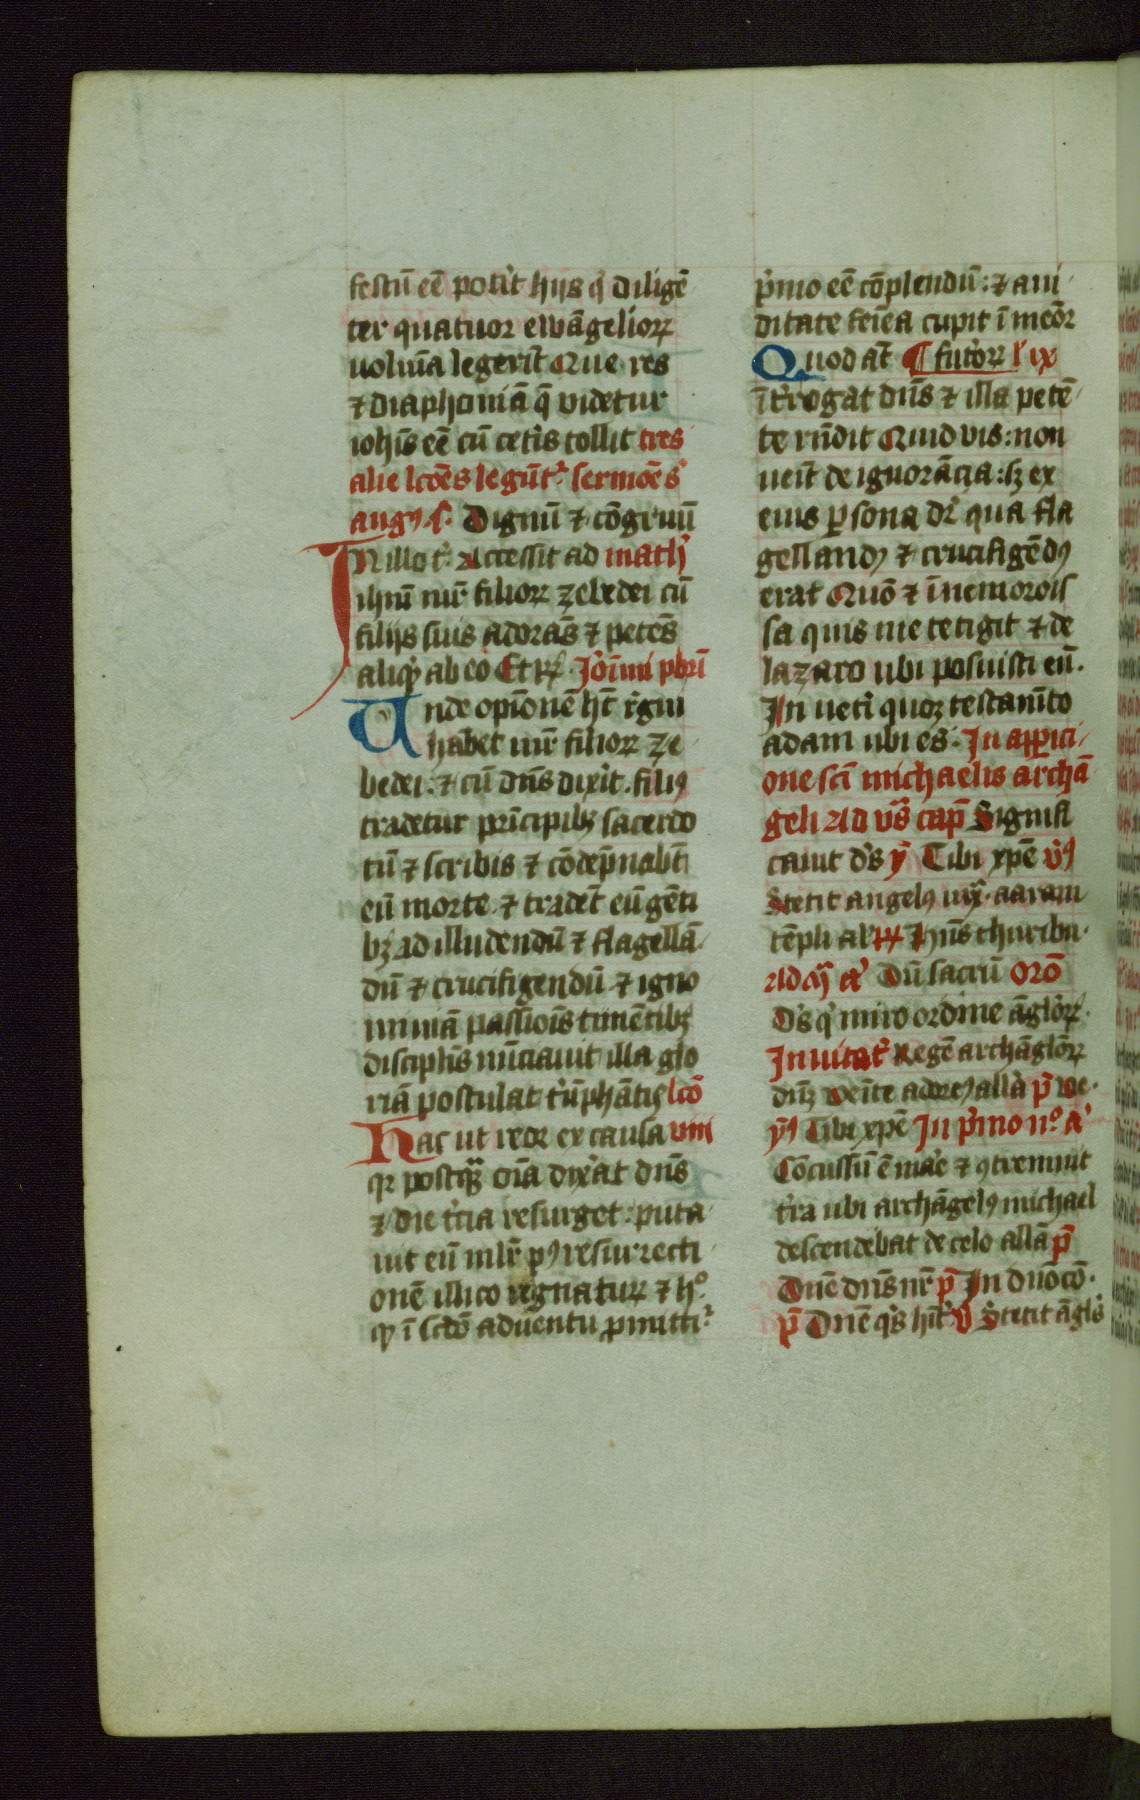 festū eē potit̾ hijs q̾ diligē
ter quatuor ewāgeliorꝝ
volūīa legerīt Que res
⁊ diaphoniā q̄ videtur
ioh̄is eē cū cet̾is tollit tres
alie lcōes legūt̾ sermōes
augꝰ s̾. Dignū ⁊ cōgruū
In illo t̾. Accessit ad math̾
ih̄m mr̄ filiorꝝ zebedei cū
filijs suis adorās ⁊ petēs
aliqͥ ab eo Et rꝝ. Jōimi pbr̄i
Unde opīonē h̄t r̾gni
habet mr̄ filiorꝝ ze
bedei: ⁊ cū dn̄s dixit. filiꝰ
tradetur prīcipibꝫ sacerdo
tū ⁊ scribis ⁊ cōdēpnabūt
eū morte ⁊ tradēt eū gēti
bꝫ ad illudendū ⁊ flagellā
dū ⁊ crucifigendū ⁊ igno
miniā passiōis timētibꝫ
discipl̄is nūciauit illa glo
riā postulat t̾ūphātis lcō
Hac ut reor ex causa viii
qꝛ postqꝫ oīa dix̾at dn̄s
⁊ die t̾cia resurget: puta
uit eū ml̄r pꝰ resurrecti
onē illico regnaturꝝ ⁊ hͦ
qͥ ī sc̄do aduentu ꝓmitti̾
p̾mo eē cōplendū: ⁊ aui
ditate feīea cupit ī meōr
Quod at̄ ¶ futorꝝ l̾ ix
īt̾rogat dn̄s ⁊ illa petē
te rn̄dit Quid vis: non
uēit de ignorācia: sꝫ ex
eius ꝑsona dr̄ qua fla
gellandꝰ ⁊ crucifigēdꝰ
erat Quō ⁊ ī nemorois
sa quis me tetigit ⁊ de
lazaro ubi posuisti eū.
In uet̾i quoꝫ testamīto
adam ubi es. In apꝑici
one sc̄i michaelis archā
geli Ad vs̄ cap̄ Signifi
cauit d̾s ẏ Tibi xp̄e v̾ꝰ
Stetit angelꝰ iux̄. aaram
tēpli al̾ Hn̄s thuribu
Ad m̄ a̾ Dū sacrū Orō
D̾s q̾ miro ordine āglorꝝ
Inuitat̾ Regē archāglorꝝ
dn̄ꝫ Veīte adorꝰ alla̾ p̄ Ve
ẏꝰ Tibi xp̄e In p̾mo nͦ. a̾
Cōcussū ē mar̾e ⁊ ꝯtremuit
t̾ra ubi archāgelꝰ michael
descendebat de celo allā p̄
Dn̄e dn̄s nr̄ p̄ In dn̄o cō
p̄ Dn̄e q̾s hīt̾ V̾ Stetit āgl̾s